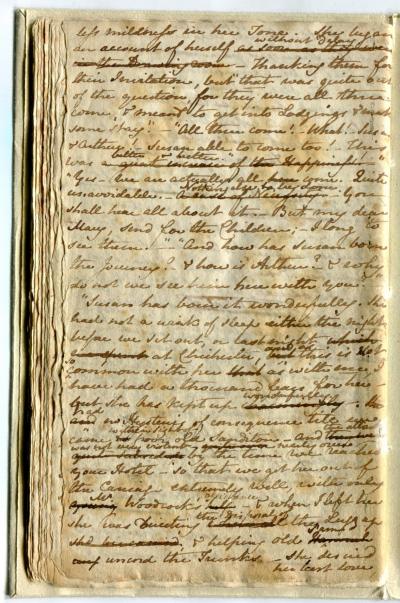 less mildness in her Tone. She began
an account of herself without delay
as soon as they were
in the Drawing room. Thanking them for
their Invitation, but "that was quite out
of the question, for they were all three
come, & meant to get into Lodgings & make
some stay". "All three come! What! Susan
& Arthur! Susan able to come too! This
was better & better."
"Yes we are actually all come. Quite
unavoidable. Nothing else to be done. You
shall hear all about it. But my dear
Mary, send for the Children; I long to
see them." "And how has Susan born
the Journey? & how is Arthur? & why
do not we see him here with you?"
"Susan has born it wonderfully. She
had not a wink of sleep either the night
before we set out, or last night
at Chichester, and as this is not
so common with her as with me, I
have had a thousand fears for her
but she has kept up wonderfully
had no Hysterics of consequence till we
came within sight of poor old Sanditon and the attack
was not very violent nearly over
by the time we reached
your Hotel so that we got her out of
the Carriage extremely well, with only
Mr Woodcock's assistance & when I left her
she was directing the Disposal of the Luggage
& helping old Sam
uncord the Trunks. She desired
her best Love